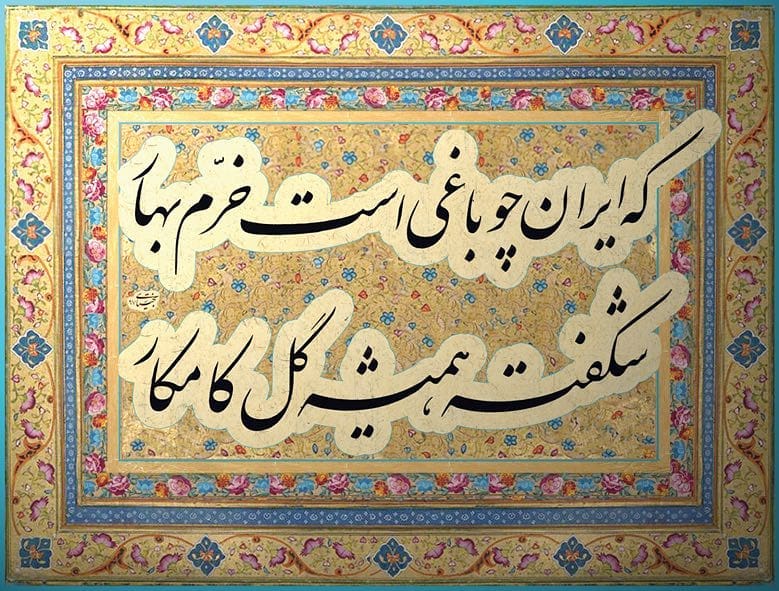 که ایران چو باغی است خرّم بهار
شگفته همیشه گل کامکار